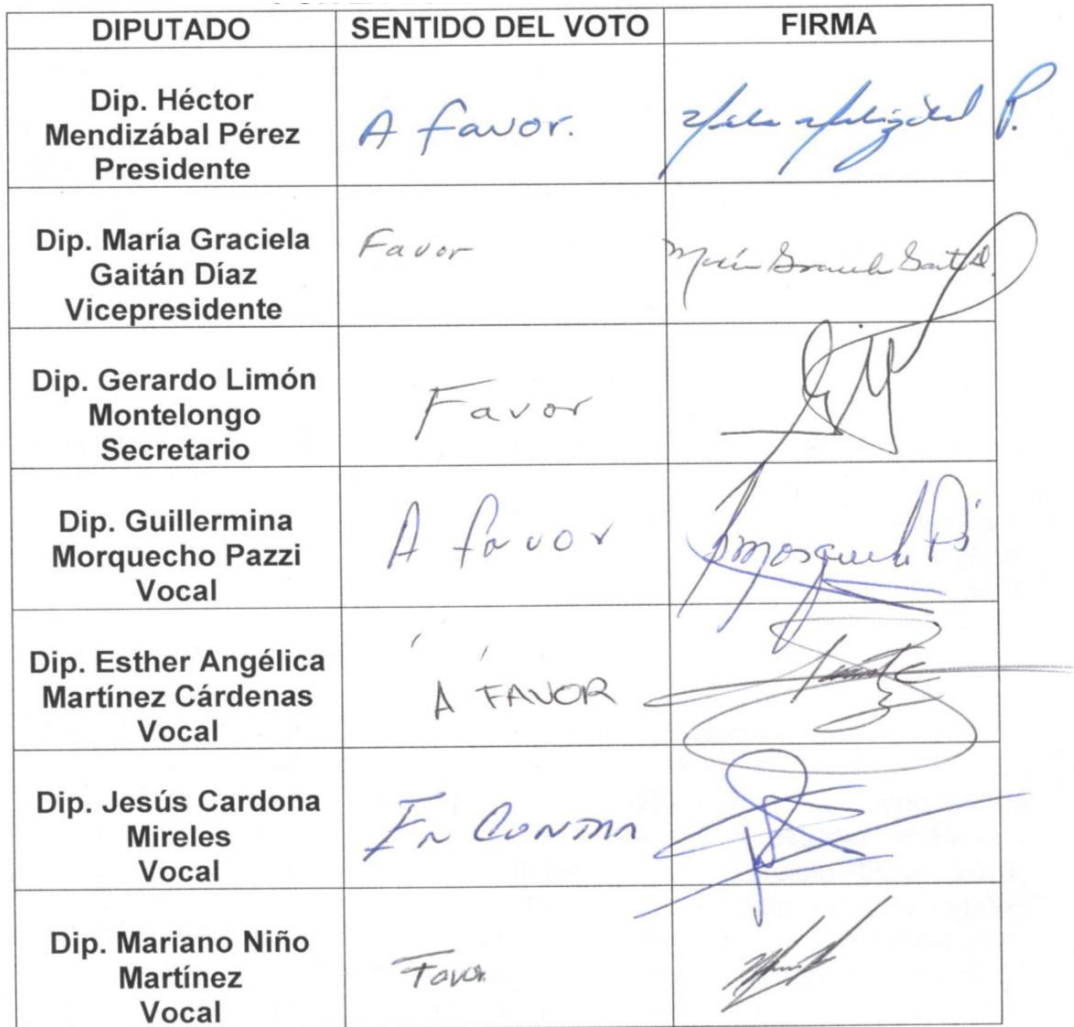 DIPUTADO SENTIDO DEL VOTO FIRMA
Dip. Héctor
Mendizábal Pérez
Presidente
A favor.
Dip. María Graciela
Gaitán Díaz
Vicepresidente
Favor
María Graciela
Dip. Gerardo Limón
Montelongo
Secretario
Favor
Dip. Guillermina
Morquecho Pazzi
Vocal
A favor
Dip. Esther Angélica
Martínez Cárdenas
Vocal
A FAVOR
Dip. Jesús Cardona
Mireles
Vocal
En CONTRA
Dip. Mariano Niño
Martínez
Vocal
Favor